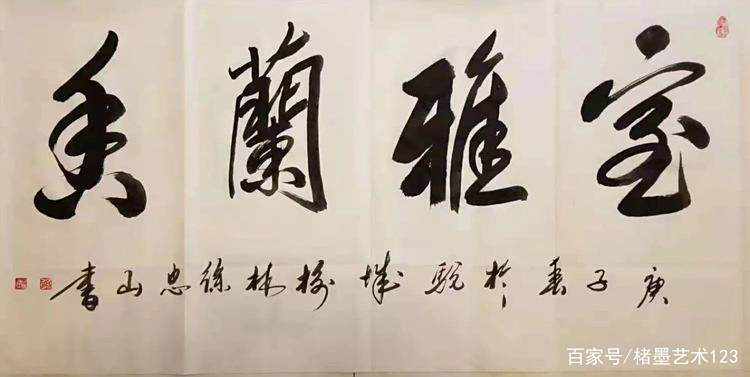 室雅蘭香
庚子春於駝城榆林徐忠山書
百家号/楮墨艺术123